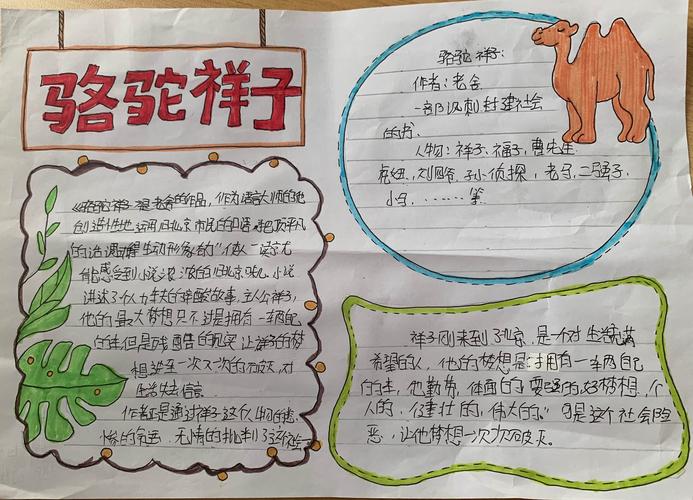 骆驼祥子
《骆驼祥子》是老舍的作品,作为语言大师的他
创造性地运用北京市民的口语,把平凡
的话调动生动形象的"人像"一读就
能感受到小说浓浓的旧北京味儿,小说
讲述了个人力车夫的辛酸故事,主人公祥子,
他的最大梦想只不过是拥有一辆自己
的车,但是残酷的现实让祥子的梦
想甚至一次又一次的破灭,对
生活失去信心
作者正是通过祥子这个人物的悲
惨的命运,无情的批判了这个
骆驼祥子:
作者:老舍
一部讽刺封建社会
的书、
人物:祥子、福子,曹先生
虎妞、刘四爷、孙侦探,老马,二强子,
小马,……等
祥子刚来到北京,是一个对生活充满
希望的人,他的梦想是拥有一车两自己
的车,他勤劳,体面的,要强的,好梦想,个
人的,健壮的,伟大的。可是这个社会险
恶,让他梦想一次次破灭。